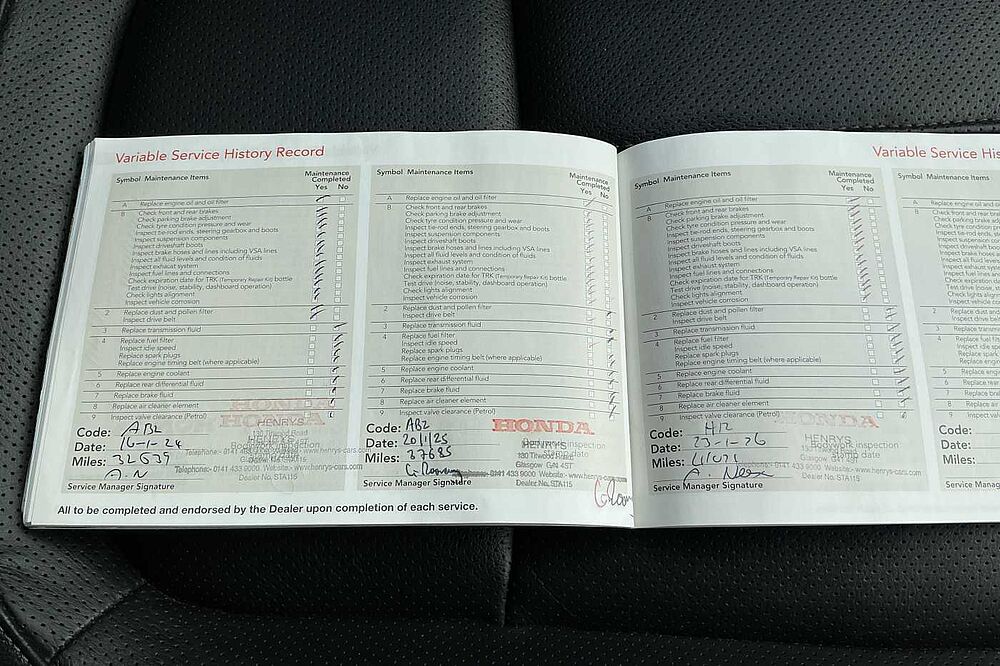 Variable Service History Record
Symbol Maintenance Items
Maintenance
Completed
Yes No
A Replace engine oil and oil filter
B Check front and rear brakes
Check parking brake adjustment
Check tyre condition pressure and wear
Inspect tie-rod ends, steering gearbox and boots
Inspect suspension components
Inspect driveshaft boots
Inspect brake hoses and lines including VSA lines
Inspect all fluid levels and condition of fluids
Inspect exhaust system
Inspect fuel lines and connections
Check expiration date for TRK (Temporary Repair Kit) bottle
Test drive (noise, stability, dashboard operation)
Check lights alignment
Inspect vehicle corrosion
2 Replace dust and pollen filter
Inspect drive belt
3 Replace transmission fluid
4 Replace fuel filter
Inspect idle speed
Replace spark plugs
Replace engine timing belt (where applicable)
5 Replace engine coolant
6 Replace rear differential fluid
7 Replace brake fluid
8 Replace air cleaner element
9 Inspect valve clearance (Petrol)
HONDA
HENRYS
Code: AB2
Date: 16-1-24
Miles: 32639
A.N
Telephone:- 0141 433 9000 Website:- www.henrys-cars.com
Dealer No. STA115
Service Manager Signature
All to be completed and endorsed by the Dealer upon completion of each service.
Symbol Maintenance Items
Maintenance
Completed
Yes No
A Replace engine oil and oil filter
B Check front and rear brakes
Check parking brake adjustment
Check tyre condition pressure and wear
Inspect tie-rod ends, steering gearbox and boots
Inspect suspension components
Inspect driveshaft boots
Inspect brake hoses and lines including VSA lines
Inspect all fluid levels and condition of fluids
Inspect exhaust system
Inspect fuel lines and connections
Check expiration date for TRK (Temporary Repair Kit) bottle
Test drive (noise, stability, dashboard operation)
Check lights alignment
Inspect vehicle corrosion
2 Replace dust and pollen filter
Inspect drive belt
3 Replace transmission fluid
4 Replace fuel filter
Inspect idle speed
Replace spark plugs
Replace engine timing belt (where applicable)
5 Replace engine coolant
6 Replace rear differential fluid
7 Replace brake fluid
8 Replace air cleaner element
9 Inspect valve clearance (Petrol)
HONDA
HENRYS
Code: AB2
Date: 20/1/25
Miles: 37685
Glasgow G41 4ST
0141 433 9000 Website:- www.henrys-cars.com
Dealer No. STA115
Service Manager Signature
Variable Service His
Symbol Maintenance Items
Maintenance
Completed
Yes No
A Replace engine oil and oil filter
B Check front and rear brakes
Check parking brake adjustment
Check tyre condition pressure and wear
Inspect tie-rod ends, steering gearbox and boots
Inspect suspension components
Inspect driveshaft boots
Inspect brake hoses and lines including VSA lines
Inspect all fluid levels and condition of fluids
Inspect exhaust system
Inspect fuel lines and connections
Check expiration date for TRK (Temporary Repair Kit) bottle
Test drive (noise, stability, dashboard operation)
Check lights alignment
Inspect vehicle corrosion
2 Replace dust and pollen filter
Inspect drive belt
3 Replace transmission fluid
4 Replace fuel filter
Inspect idle speed
Replace spark plugs
Replace engine timing belt (where applicable)
5 Replace engine coolant
6 Replace rear differential fluid
7 Replace brake fluid
8 Replace air cleaner element
9 Inspect valve clearance (Petrol)
HONDA
HENRYS
Code:
Date: 23-1-26
Miles: 41071
433 9000 Website:- www.henrys-cars.com
Dealer No. STA115
Service Manager Signature
Symbol Maintenance Items
A Replace engine oil
B Check front and rear
Check parking brake
Check tyre condition
Inspect tie-rod ends,
Inspect suspension
Inspect driveshaft
Inspect brake hoses
Inspect all fluid levels
Inspect exhaust
Inspect fuel lines and
Check expiration date
Test drive (noise,
Check lights
Inspect vehicle
2 Replace dust and
Inspect drive belt
3 Replace transmission
4 Replace fuel filter
Inspect idle speed
Replace spark plugs
Replace engine
5 Replace engine
6 Replace rear
7 Replace brake
8 Replace air
9 Inspect valve
Code:
Date:
Miles:
Service Manager